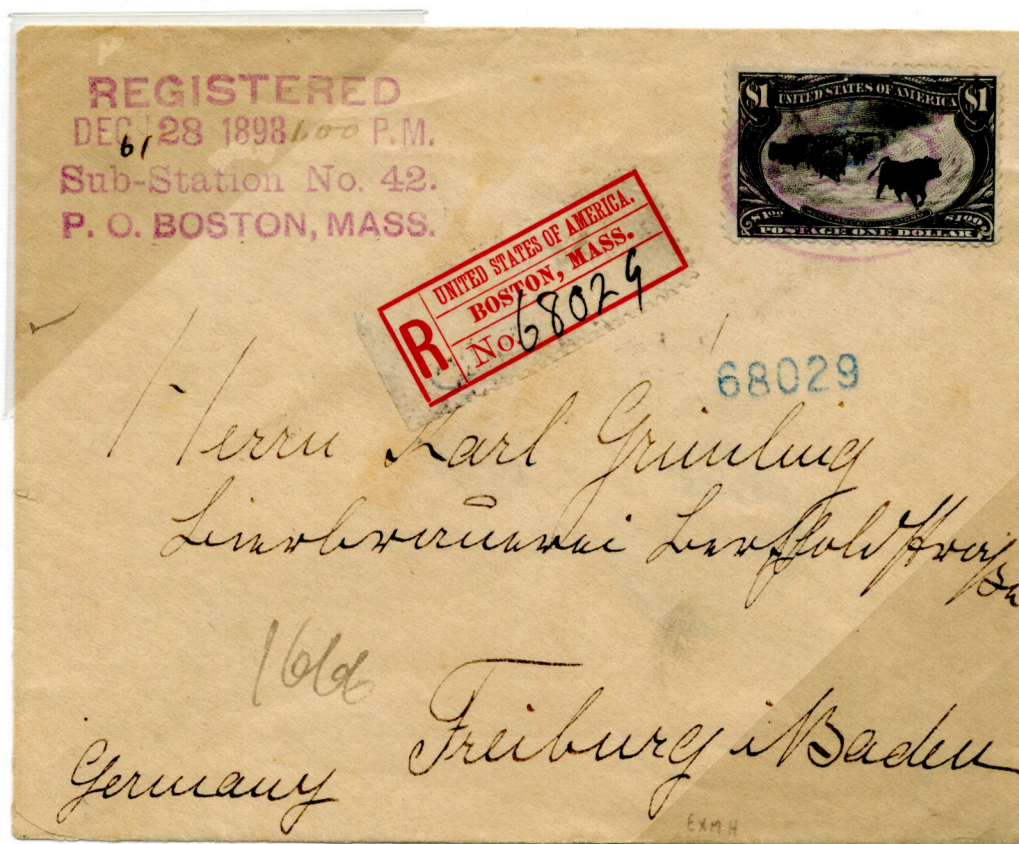 REGISTERED
DEC 28 1898 1 00 P.M.
61
Sub-Station No. 42.
P. O. BOSTON, MASS.
$1 UNITED STATES OF AMERICA $1
$100 $100
POSTAGE ONE DOLLAR
UNITED STATES OF AMERICA.
BOSTON, MASS.
R No. 68029
68029
Herrn Karl Grünling
Bierbrauerei Bertholdstraße
166
Freiburg i/Baden
Germany
EXMH